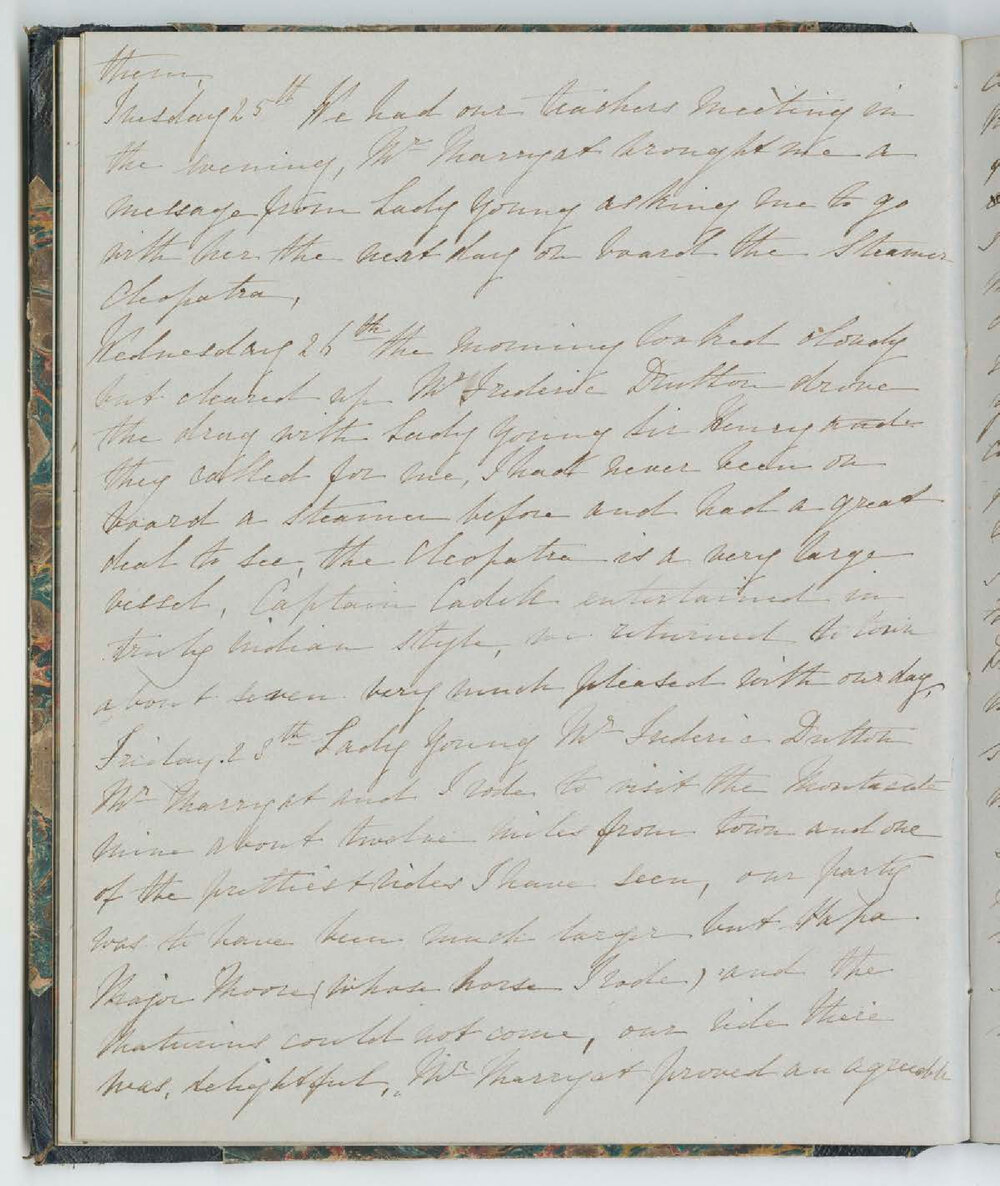 them.
Tuesday 25th We had our teachers meeting in
the evening, Mr Marryat brought me a
message from Lady Young asking me to go
with her the next day on board the Steamer
Cleopatra,
Wednesday 26th the morning looked cloudy
but cleared up Mr Frederic Dutton drove
the drag with Lady Young Sir Henry and
they called for me, I had never been on
board a steamer before and had a great
deal to see, the Cleopatra is a very large
vessel, Captain Cadell entertained in
truly Indian style, we returned to town
about seven very much pleased with our day,
Friday 28th Lady Young Mr Frederic Dutton
Mr Marryat and I rode to visit the Montacute
mine about twelve miles from town and one
of the prettiest rides I have seen, our party
was to have been much larger but Papa
Major Moore (whose horse I rode) and the
Maturins could not come, our ride there
was, delightful, Mr Marryat proved an agreeable